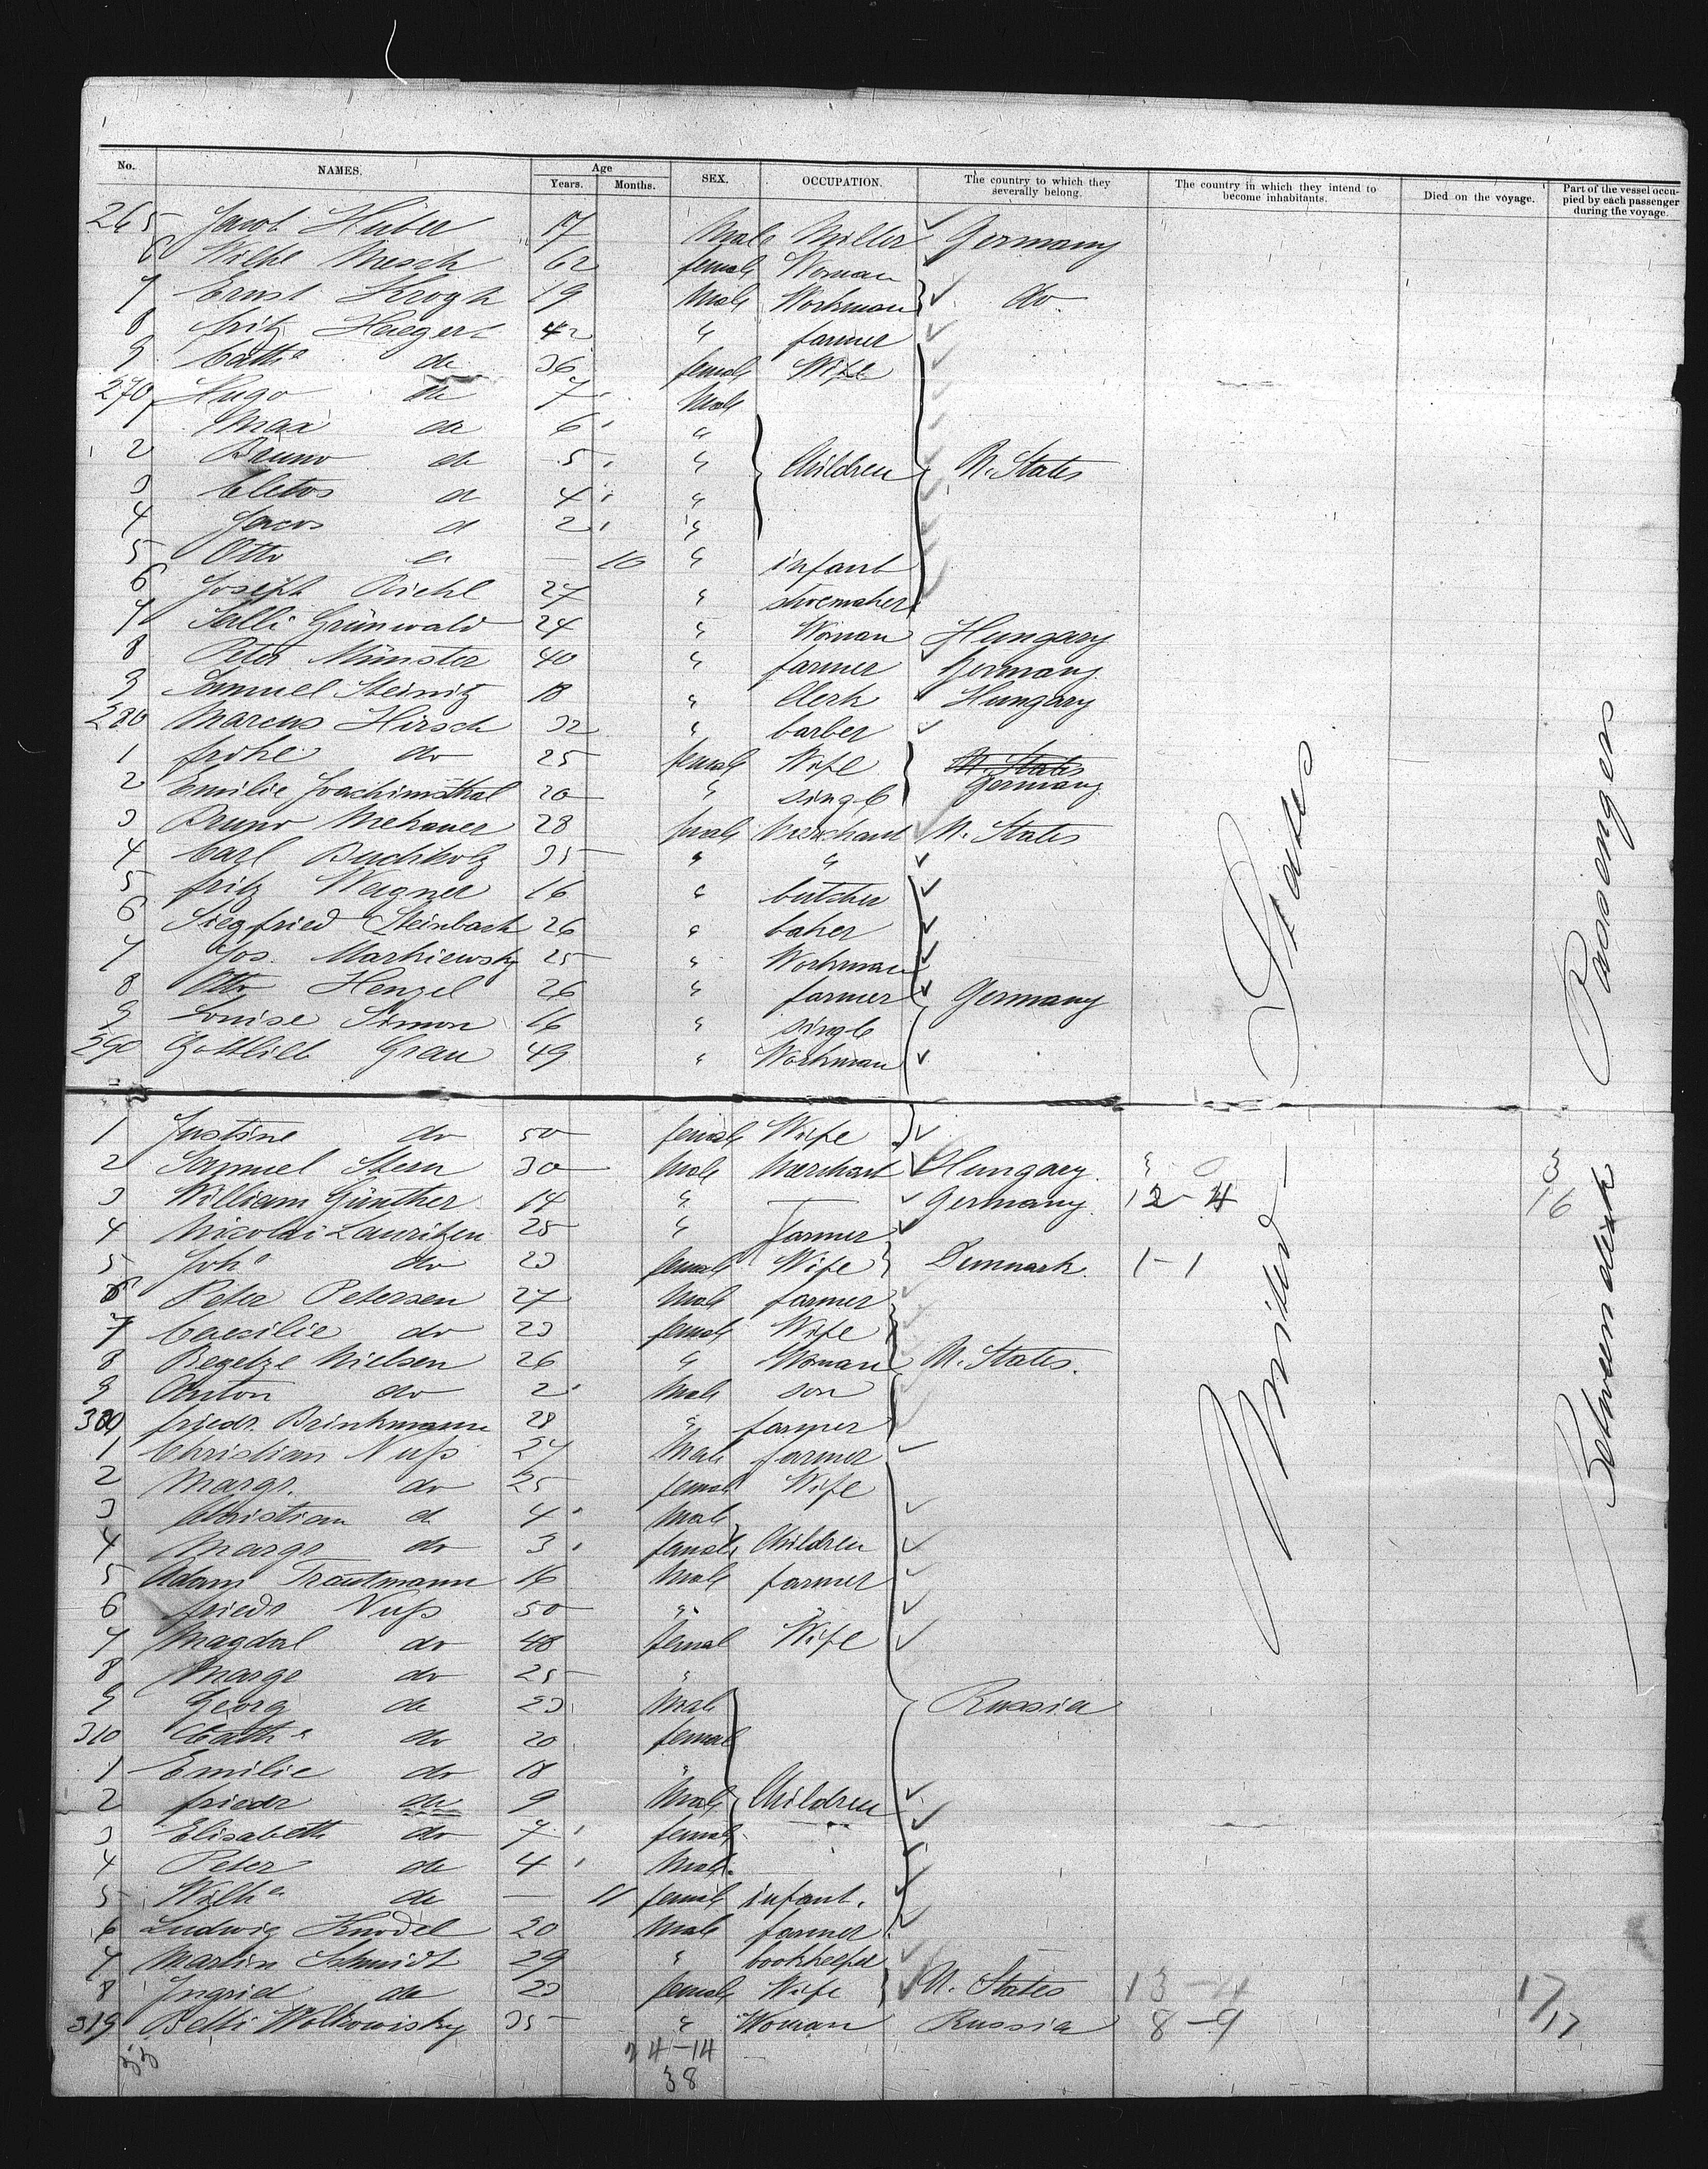 No. NAMES. Age Years. Months. SEX. OCCUPATION. The country to which they severally belong. The country in which they intend to become inhabitants. Died on the voyage. Part of the vessel occupied by each passenger during the voyage.
265 Jacob Huber 17 Male Miller Germany
6 Wilhe Mesch 62 female Woman
7 Ernst Krogh 19 Male Workman do
8 fritz Haegert 42 " farmer
9 Catha do 36 female Wife
270 Hugo do 7 Male
1 Max do 6 "
2 Bruno do 5 " Children U. States
3 Cletos d 4 "
4 d 2 "
5 Otto d — 10 " infant
6 Joseph Riehl 27 " shoemaker
7 Salli Grünwald 24 " Woman Hungary
8 Peter Münster 40 " farmer Germany
9 Samuel Steinitz 18 " Clerk Hungary
280 Marcus Hirsch 32 " barber
1 do 25 female Wife U. States
2 Emilie Joachimsthal 20 " single Germany
3 Bruno Mehauer 28 male Merchant U. States
4 Carl Buchholz 35 " "
5 fritz Wagner 16 " butcher
6 Siegfried Steinbach 26 " baker
7 Jos. Markiewsky 25 " Workman
8 Otto Henzel 26 " farmer Germany
9 Louise Simon 16 " single
290 Gottlieb Grau 49 " Workman
1 Justine do 50 female Wife
2 Samuel Stern 30 Male Merchant Hungary 3 0 3
3 William Günther 14 " — Germany 12 - 4 16
4 Nicolai Lauritzen 25 " farmer
5 Joha do 23 female Wife Denmark 1 - 1
6 Peter Petersen 27 Male farmer
7 Caecilie do 23 female Wife
8 Nielsen 26 " Woman U. States.
9 Anton do 2 Male son
300 friedr. Brinkmann 28 " farmer
1 Christian Nuß 27 Male farmer
2 Margr. do 25 female Wife
3 Christian d 4 Male
4 Margr do 3 female Children
5 Adam Trautmann 16 Male farmer
6 friedr Nuß 50 " "
7 Magdal do 48 female Wife
8 Margr do 25 "
9 Georg do 23 Male Russia
310 Catha do 20 female
1 Emilie do 18 "
2 friedr do 9 Male Children
3 Elisabeth do 7 female
4 Peter do 4 Male
5 Wilha do — 11 female infant.
6 Ludwig Knodel 20 Male farmer
7 Martin Schmidt 29 " bookkeeper
8 Ingrid do 23 female Wife U. States 13 - 4 17
319 Betti Wolkowisky 35 " Woman Russia 8 - 9 17
55 24-14
38
United States
Between deck Passengers